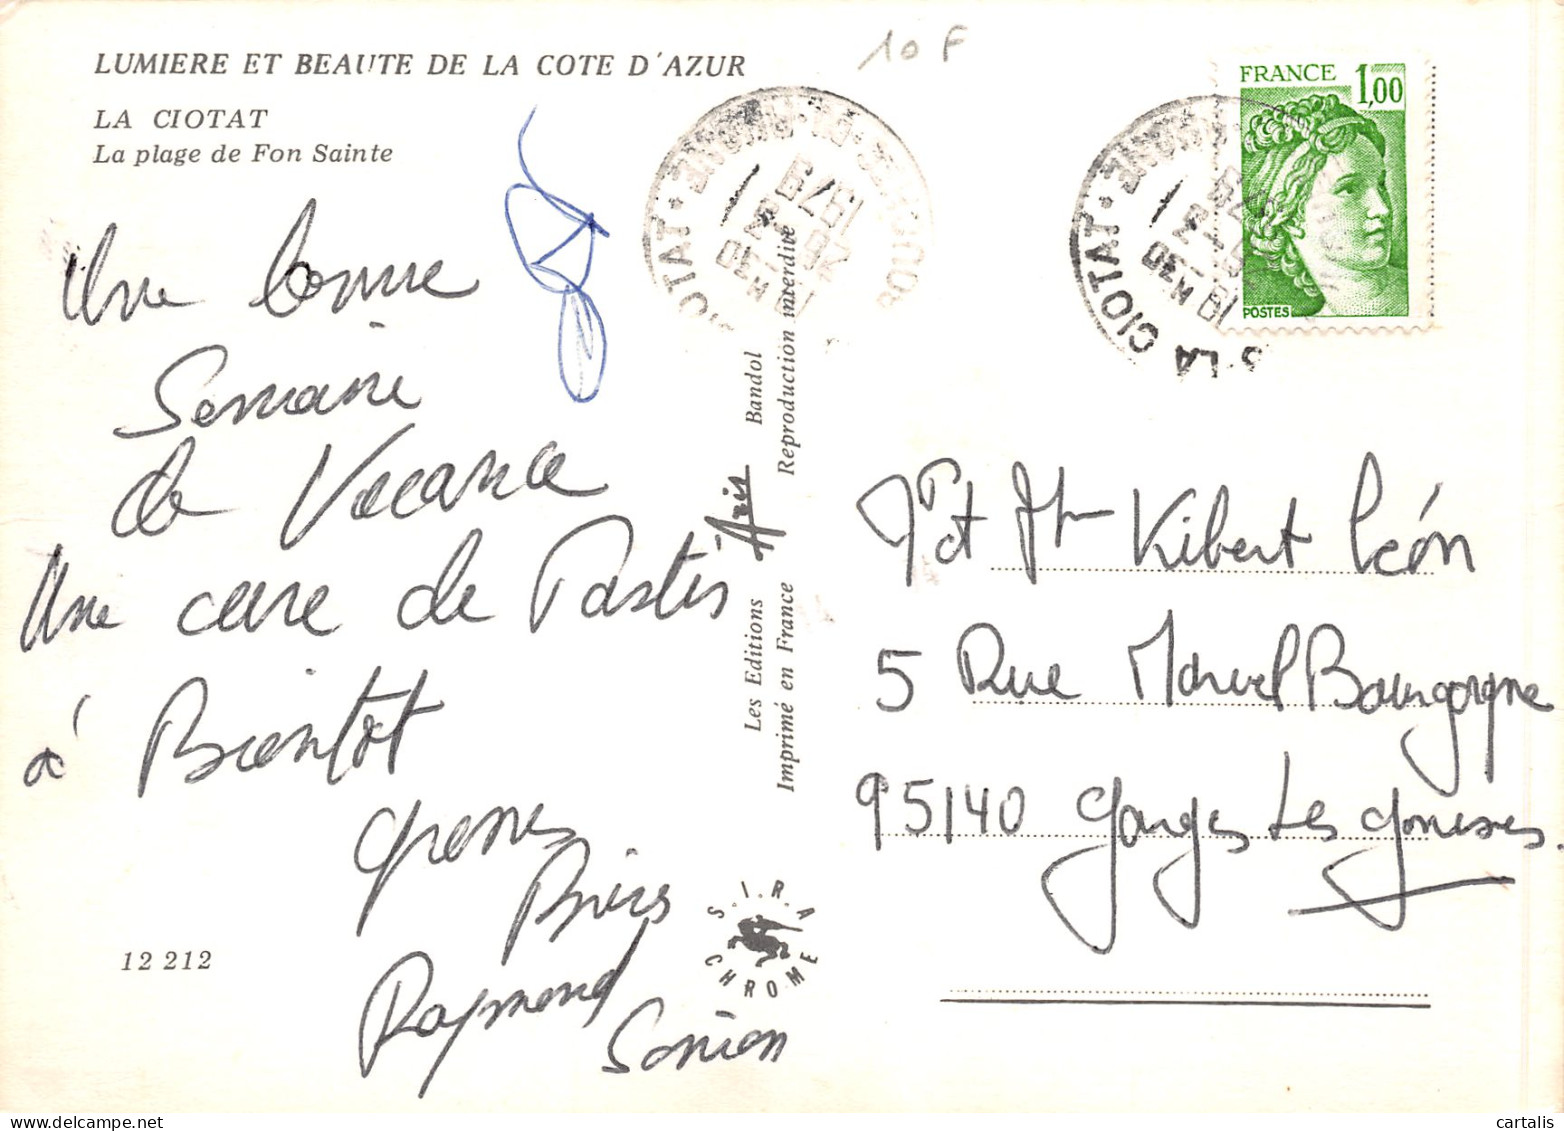 LUMIERE ET BEAUTE DE LA COTE D'AZUR
LA CIOTAT
La plage de Fon Sainte
10 F
Une bonne
Semaine
de Vacance
Une cure de Pastis
à Bientot
grosses
Bises
Raymond
12 212
Les Editions Aris Bandol
Imprimé en France Reproduction interdite
S.I.R.A
CHROME
LA CIOTAT
1979
FRANCE 1,00
POSTES
Kibert Léon
5 Rue Marcel Bourgogne
95140 Garges Les Gonesses.